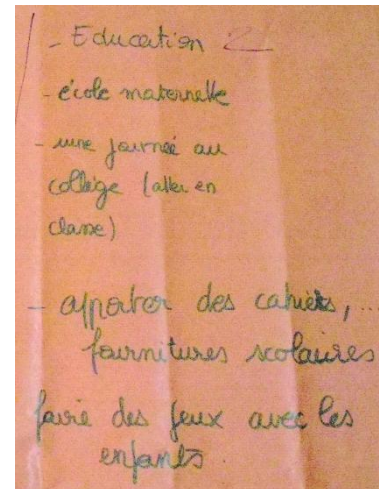 - Education 2
- école maternelle
- une journée au
collège (aller en
classe)
- apporter des cahiers, ...
fournitures scolaires
faire des jeux avec les
enfants.